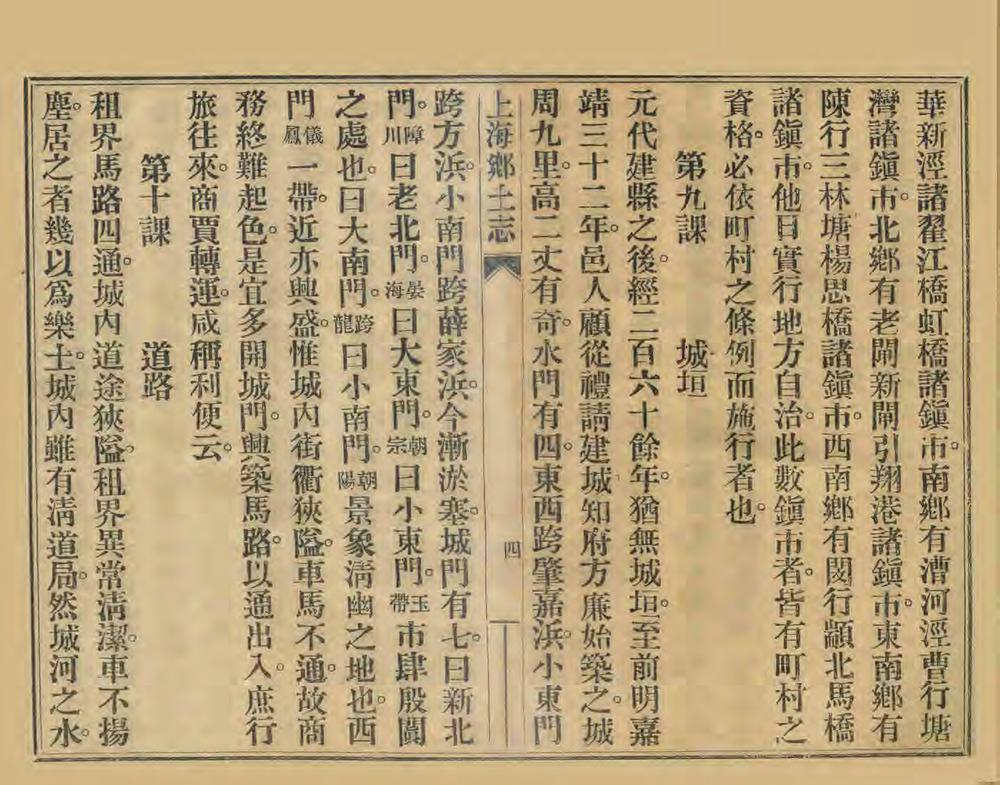 華新涇諸翟江橋虹橋諸鎭市。南鄕有漕河涇曹行塘
灣諸鎭市。北鄕有老閘新閘引翔港諸鎭市。東南鄕有
陳行三林塘楊思橋諸鎭市。西南鄕有閔行顓北馬橋
諸鎭市。他日實行地方自治。此數鎭市者。皆有町村之
資格。必依町村之條例而施行者也。
第九課　城垣
元代建縣之後。經二百六十餘年。猶無城垣。至前明嘉
靖三十二年。邑人顧從禮請建城。知府方廉始築之。城
周九里。高二丈有奇。水門有四。東西跨肇嘉浜。小東門
上海鄕土志　四
跨方浜。小南門跨薛家浜。今漸淤塞。城門有七。曰新北
門。障川曰老北門。晏海曰大東門。朝宗曰小東門。玉帶市肆殷闐
之處也。曰大南門。跨龍曰小南門。朝陽景象淸幽之地也。西
門儀鳳一帶。近亦興盛。惟城內街衢狹隘。車馬不通。故商
務終難起色。是宜多開城門。興築馬路。以通出入。庶行
旅往來。商賈轉運。咸稱利便云。
第十課　道路
租界馬路四通。城內道途狹隘。租界異常淸潔。車不揚
塵。居之者幾以爲樂土。城內雖有淸道局。然城河之水。